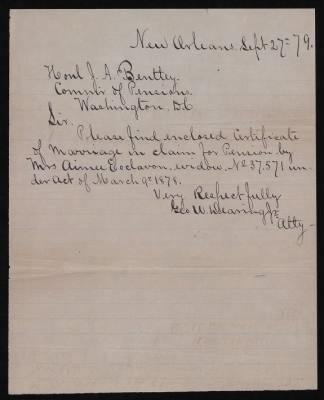 New Orleans Sept 27th 79.
Honl J. A. Bentley.
Commr of Pensions.
Washington, D.C
Sir.
Please find enclosed Certificate
of Marriage in claim for Pension by
Mrs Aimee Esclavon, widow, No 37,571 un-
der Act of March 9th 1878.
Very Respectfully
Geo W Dearing Jr
Atty-